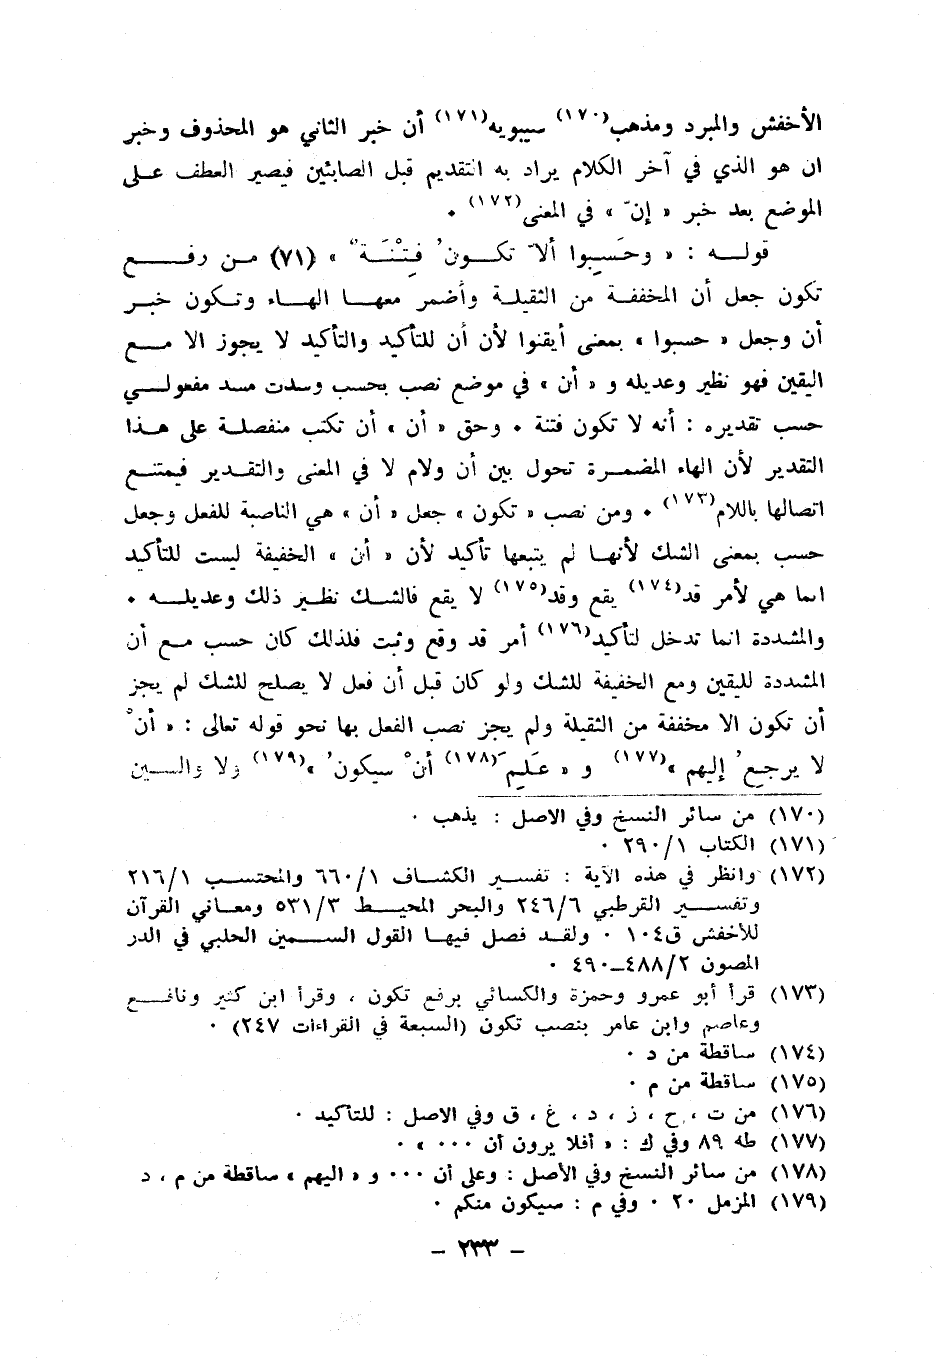 الأخفش والمبرد ومذهب(١٧٠) سيبويه(١٧١) أن خبر الثاني هو المحذوف وخبر
ان هو الذي في آخر الكلام يراد به التقديم قبل الصابئين فيصير العطف على
الموضع بعد خبر « إنّ » في المعنى(١٧٢) ٠
قوله : « وحَسِبوا ألاّ تكونُ فِتْنَةٌ » (٧١) من رفع
تكون جعل أن المخففة من الثقيلة وأضمر معها الهاء وتكون خبر
أن وجعل « حسبوا » بمعنى أيقنوا لأن أن للتأكيد والتأكيد لا يجوز الا مع
اليقين فهو نظير وعديله و « أن » في موضع نصب بحسب وسدت مسد مفعولي
حسب تقديره : أنه لا تكون فتنة ٠ وحق « أن » أن تكتب منفصلة على هذا
التقدير لأن الهاء المضمرة تحول بين أن ولام لا في المعنى والتقدير فيمتنع
اتصالها باللام(١٧٣) ٠ ومن نصب « تكون » جعل « أن » هي الناصبة للفعل وجعل
حسب بمعنى الشك لأنها لم يتبعها تأكيد لأن « أن » الخفيفة ليست للتأكيد
انما هي لأمر قد(١٧٤) يقع وقد(١٧٥) لا يقع فالشك نظير ذلك وعديله ٠
والمشددة انما تدخل لتأكيد(١٧٦) أمر قد وقع وثبت فلذلك كان حسب مع أن
المشددة لليقين ومع الخفيفة للشك ولو كان قبل أن فعل لا يصلح للشك لم يجز
أن تكون الا مخففة من الثقيلة ولم يجز نصب الفعل بها نحو قوله تعالى : « أنْ
لا يرجعُ إليهم »(١٧٧) و « عَلِمَ(١٧٨) أنْ سيكونُ »(١٧٩) ولا والسين
(١٧٠) من سائر النسخ وفي الاصل : يذهب ٠
(١٧١) الكتاب ٢٩٠/١ ٠
(١٧٢) وانظر في هذه الآية : تفسير الكشاف ٦٦٠/١ والمحتسب ٢١٦/١
وتفسير القرطبي ٢٤٦/٦ والبحر المحيط ٥٣١/٣ ومعاني القرآن
للأخفش ق١٠٤ ٠ ولقد فصل فيها القول السمين الحلبي في الدر
المصون ٤٨٨/٢-٤٩٠ ٠
(١٧٣) قرأ أبو عمرو وحمزة والكسائي برفع تكون ، وقرأ ابن كثير ونافع
وعاصم وابن عامر بنصب تكون (السبعة في القراءات ٢٤٧) ٠
(١٧٤) ساقطة من د ٠
(١٧٥) ساقطة من م ٠
(١٧٦) من ت ، ح ، ز ، د ، غ ، ق وفي الاصل : للتأكيد ٠
(١٧٧) طه ٨٩ وفي ك : « أفلا يرون أن ٠٠٠ » ٠
(١٧٨) من سائر النسخ وفي الأصل : وعلى أن ٠٠٠ و « اليهم » ساقطة من م ، د
(١٧٩) المزمل ٢٠ ٠ وفي م : سيكون منكم ٠
- ٢٣٣ -